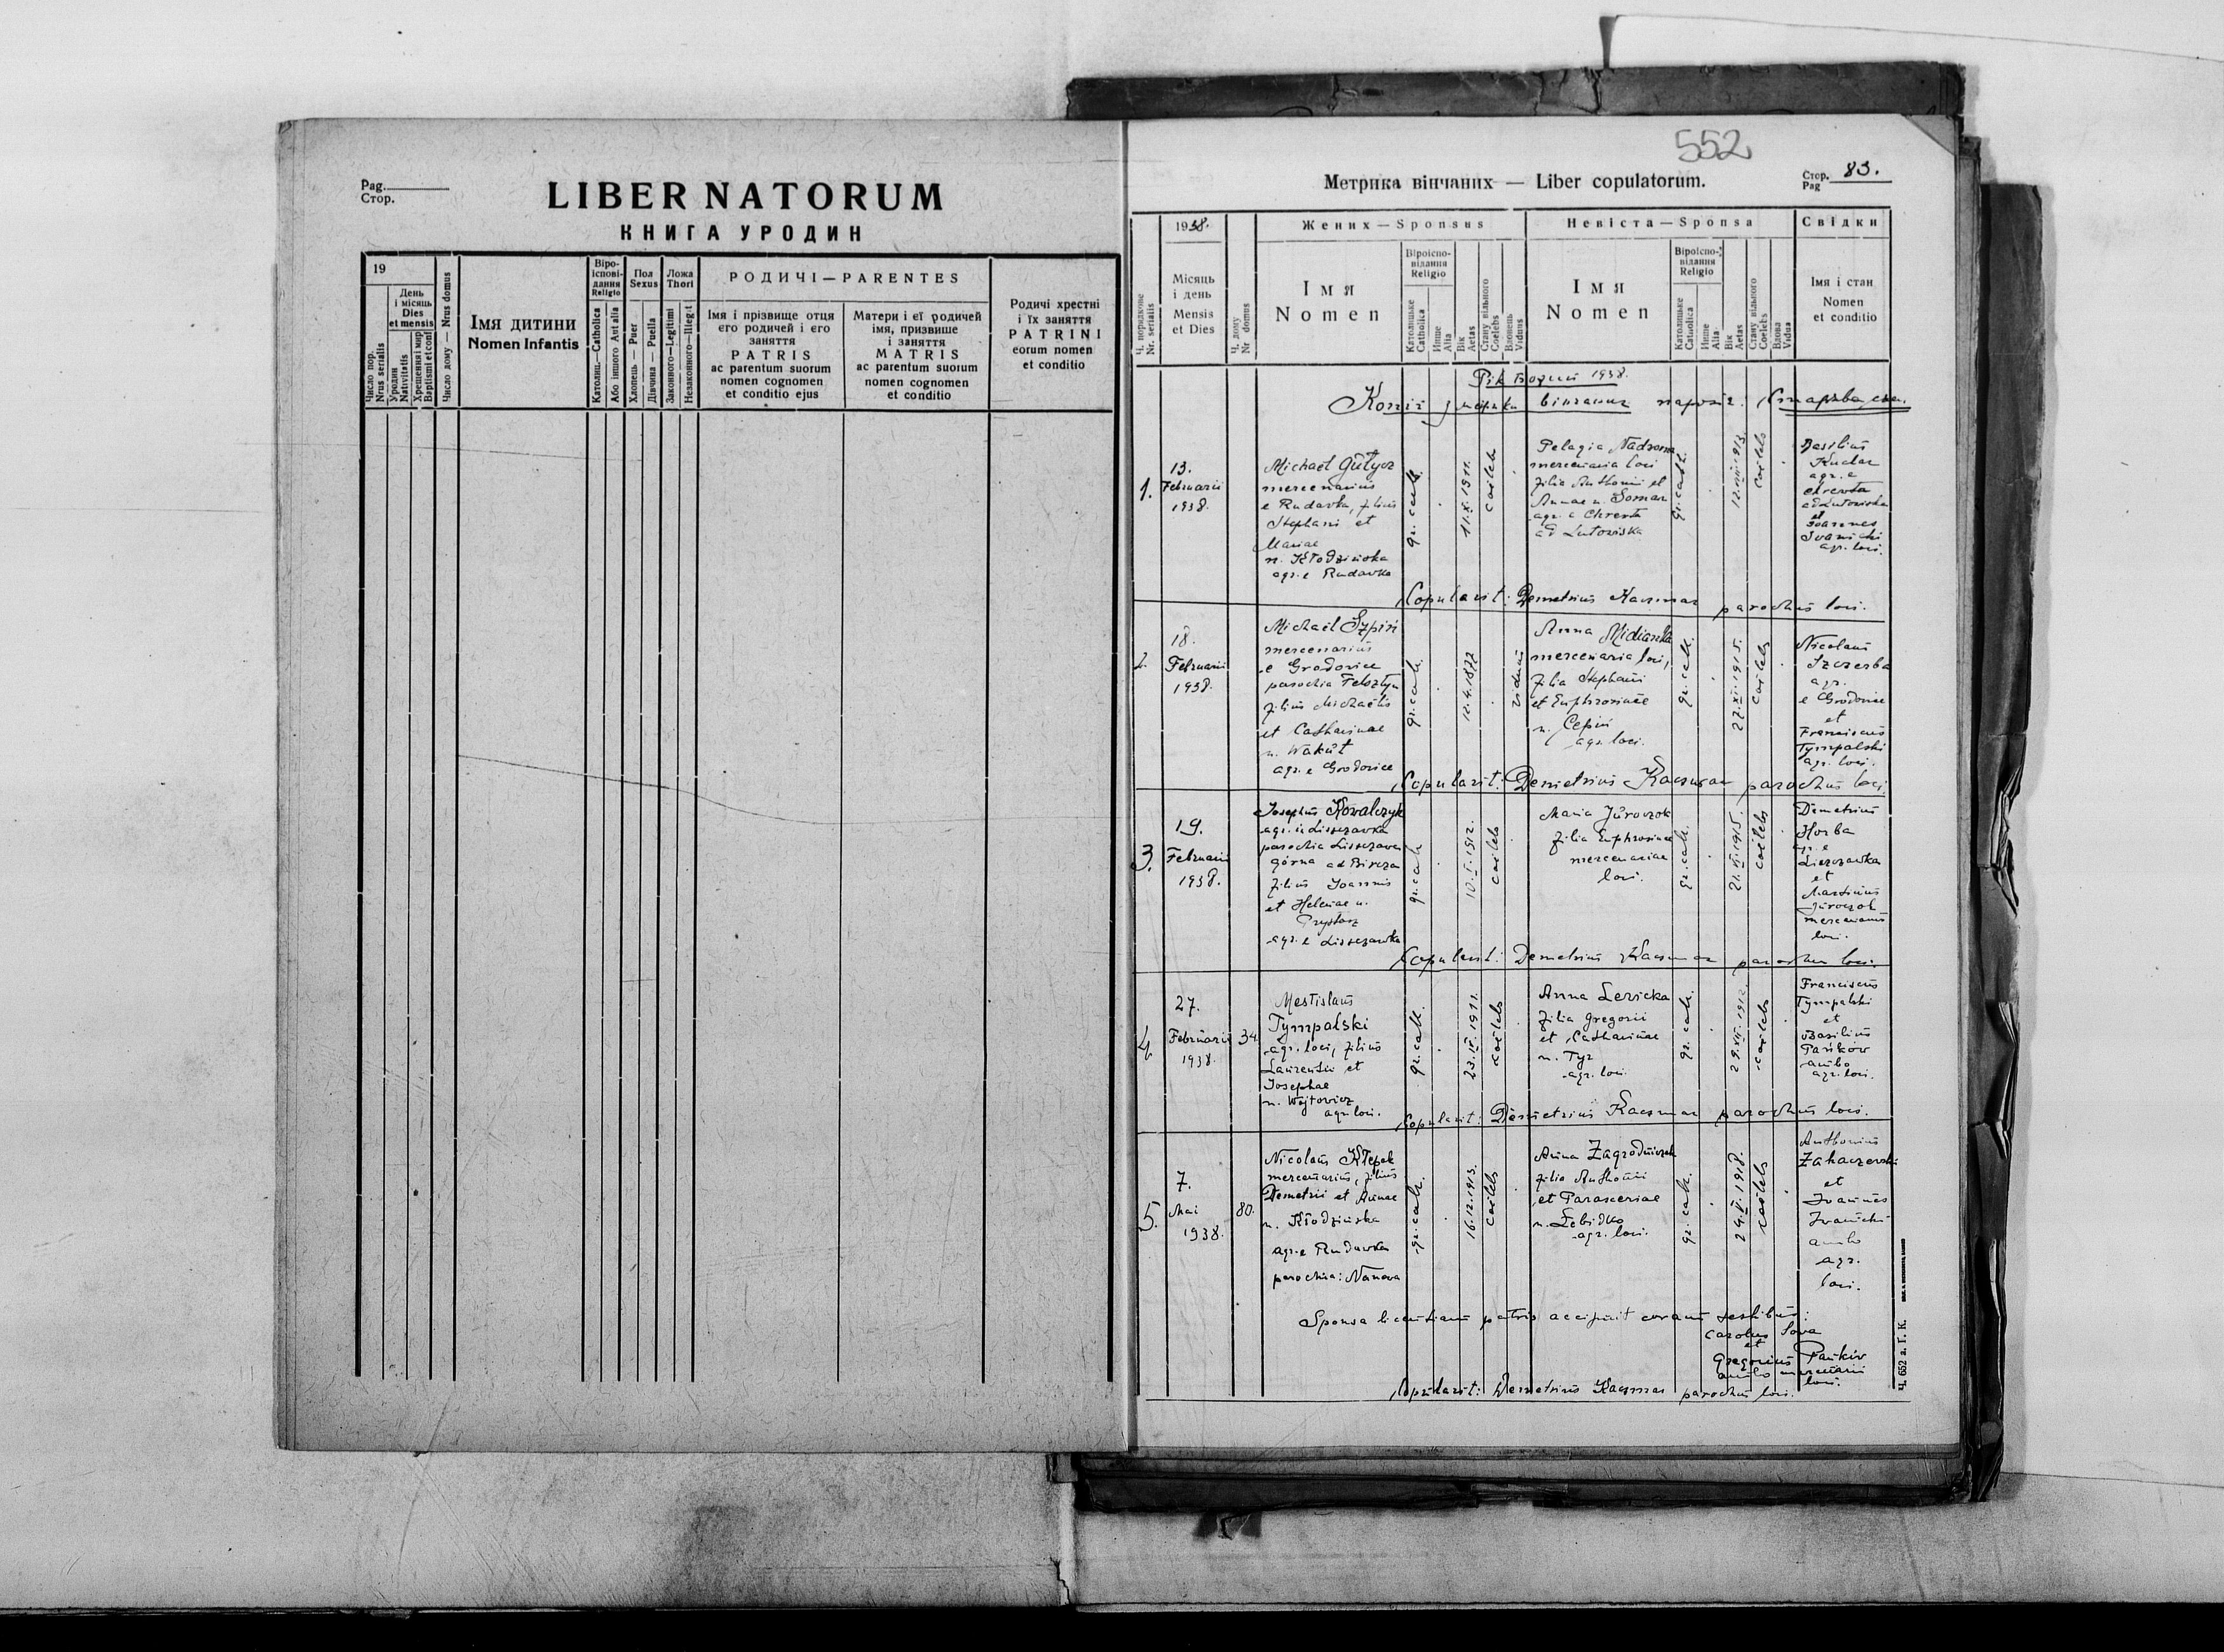 Pag.
Стор.
LIBER NATORUM
КНИГА УРОДИН
19
Число пор.
Nrus serialis
День
і місяць
Dies
et mensis
Уродин
Nativitatis
Хрещення і мир
Baptismi et conf
Число дому — Nrus domus
Імя дитини
Nomen Infantis
Віро-
іспові-
дання
Religio
Католиц.—Catholica
Або іншого Aut alia
Пол
Sexus
Хлопець — Puer
Дівчина — Puella
Ложа
Thori
Законного—Legitimi
Незаконного—Illeg-t
РОДИЧІ—PARENTES
Імя і прізвище отця
єго родичей і єго
заняття
PATRIS
ac parentum suorum
nomen cognomen
et conditio ejus
Матери і єї родичей
імя, призвище
і заняття
MATRIS
ac parentum suorum
nomen cognomen
et conditio
Родичі хрестні
і їх заняття
PATRINI
eorum nomen
et conditio
552
Метрика вінчаних — Liber copulatorum.
Стор.
Pag 83.
Ч. порядкове
Nr. serialis
1938.
Місяць
і день
Mensis
et Dies
Ч. дому
Nr domus
Жених — Sponsus
Імя
Nomen
Віроіспо-
відання
Religio
Католицьке
Catholica
Инше
Alia
Вік
Aetas
Стану вільного
Coelebs
Вдовець
Viduus
Невіста — Sponsa
Імя
Nomen
Віроіспо-
відання
Religio
Католицьке
Catholica
Инше
Alia
Вік
Aetas
Стану вільного
Coelebs
Вдова
Vidua
Свідки
Імя і стан
Nomen
et conditio
1938.
вінчаних
1.
13.
Februarii
1938.
Michael Gutycz
mercenarius
e Rudavka, filius
Stephani et
Mariae
n. Kłodzińska
agr. e Rudavka
gr. cath.
11.X.1911.
coelebs
Pelagia
mercenaria loci
filia Anthonii et
Annae n. Somar
agr. e Chrewt
ad Lutoviska
gr. cath.
12.VIII.1913.
coelebs
Basilius
Kuclar
agr. e
Chrewta
ad Lutoviska
et
Joannes
Ivanicki
agr. loci.
Copulavit: Demetrius Kaczmar parochus loci.
2.
18.
Februarii
1938.
Michael Szpiń
mercenarius
e Grodovice
parochia Felsztyn
filius Michaelis
et Catharinae
n. Wakut
agr. e Grodovice
gr. cath.
12.4.1877
viduus
Anna
mercenaria loci,
filia Stephani
et Euphrosinae
n. Cepiń
agr. loci.
gr. cath.
27.XI.1915.
coelebs
Nicolaus
Szczerba
agr.
e Grodovice
et
Franciscus
Tympalski
agr. loci.
Copulavit: Demetrius Kaczmar parochus loci.
3.
19.
Februarii
1938.
Josephus Kowalczyk
parochia
górna ad Bircza
filius Joannis
et Helenae n.
gr. cath.
10.I.1912.
coelebs
Maria Jurovzok
filia Euphrosinae
mercenariae
loci.
gr. cath.
21.VI.1915.
coelebs
Demetrius
Horba
agr. e
et
Martinus
mercenarius
loci.
Copulavit: Demetrius Kaczmar parochus loci.
4.
27.
Februarii
1938.
34.
Mestislaus
Tympalski
agr. loci, filius
Laurentii et
Josephae
n. Wojtovicz
agr. loci.
gr. cath.
23.IV.1911.
coelebs
Anna Levicka
filia Gregorii
et Catharinae
n. Tyz
agr. loci.
gr. cath.
29.VII.1912.
coelebs
Franciscus
Tympalski
et
Basilius
Pańkiv
ambo
agr. loci.
Copulavit: Demetrius Kaczmar parochus loci.
5.
7.
Mai
1938.
80.
Nicolaus Kłepak
mercenarius, filius
Demetrii et Annae
n. Kłodzińska
agr. e Rudavka
parochia: Nanova
gr. cath.
16.12.1913.
coelebs
Anna
filia Anthonii
et Parasceviae
n. Łebidko
agr. loci.
gr. cath.
24.V.1918.
coelebs
Anthonius
Zakaczevski
et
Ivannes
Ivanicki
ambo
agr.
loci.
Sponsa licentiam patris accipuit coram testibus:
Carolus Sova
et
Gregorius Pańkiv
ambo mercenarii
loci.
Copulavit: Demetrius Kaczmar parochus loci.
Ч. 652 а. Г. К.